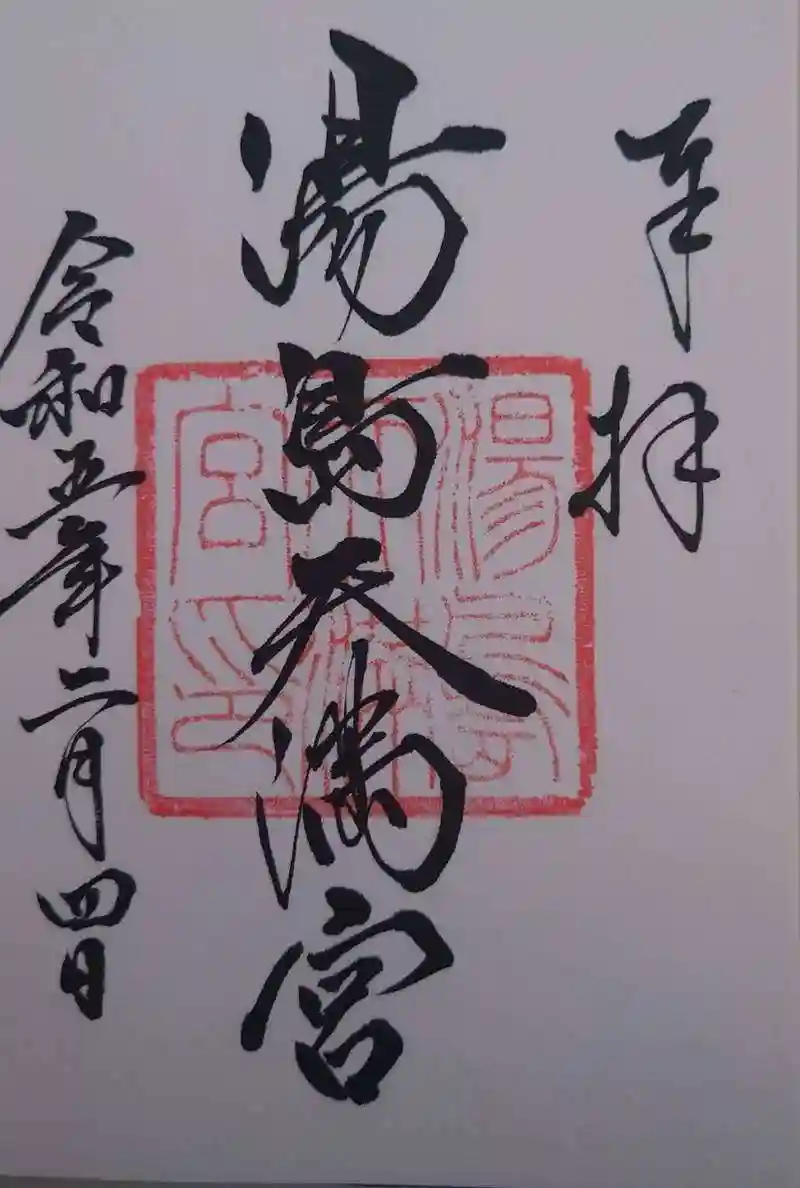 奉拝
湯島天満宮
湯島天満宮印
令和五年二月四日